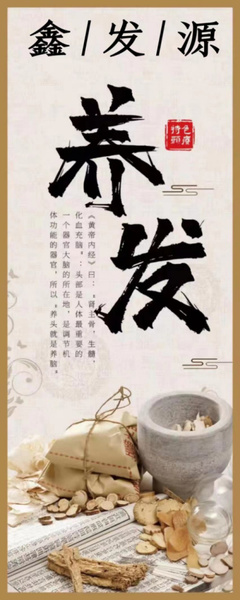 鑫/发/源
养发
特色
颐养
《黄帝内经》曰：“肾主骨，生髓，
化血充脑。”：头部是人体最重要的
一个器官大脑的所在地，是调节机
体功能的器官，所以，“养头就是养脑。”